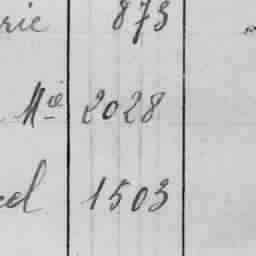 rie 873
Mie 2028
el 1503